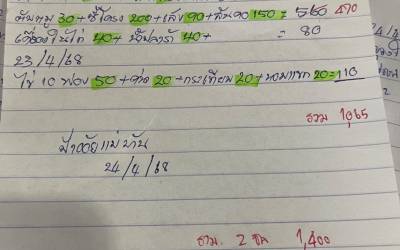 ตับหมู 30+ซี่โครง 200+เล้ง 90+สันคอ 150 = 560 470
เครื่องในไก่ 40+ น้ำปลาร้า 40+ = 80
23/4/68
ไข่ 10 ฟอง 50+ข่า 20+กระเทียม 20+หอมแขก 20=110
รวม 1,065
ฝ้าย
24/4/68
รวม. 2 ชุด 1,400